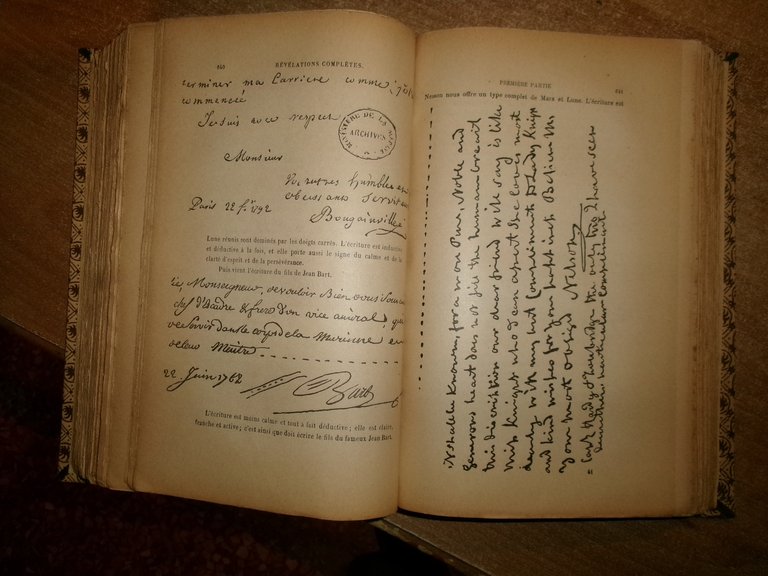 640
RÉVÉLATIONS COMPLÈTES.
terminer ma Carriere comme j'ay
commencé
Je suis avec respect
MINISTÈRE DE LA MARINE
ARCHIVES
Monsieur
humble
obeissant servit
Paris 22 f. 1792
Bougainville
Lune réunis sont dominés par les doigts carrés. L'écriture est inductive
et déductive à la fois, et elle porte aussi le signe du calme et de la
clarté d'esprit et de la persévérance.
Puis vient l'écriture du fils de Jean Bart.
Monseigneur, de vouloir Bien vous
chef d'Escadre et frere d'un vice amiral, que
de servir dans le corps de la Marine
22 Juin 1762
Bart
L'écriture est moins calme et tout à fait déductive; elle est claire,
franche et active; c'est ainsi que dois écrire le fils du fameux Jean Bart.
PREMIÈRE PARTIE
641
Nelson nous offre un type complet de Mars et Lune. L'écriture est
Known, for a more Pure, Noble and
Generous heart does not fill the human breast
this discription our dear friend will say is like
Miss Knight who I am apt She loves most
dearly with my best Compliments to Lady Knight
and kind wishes for your happiness Believe Me
your most obliged Nelson
the only two I have seen
41